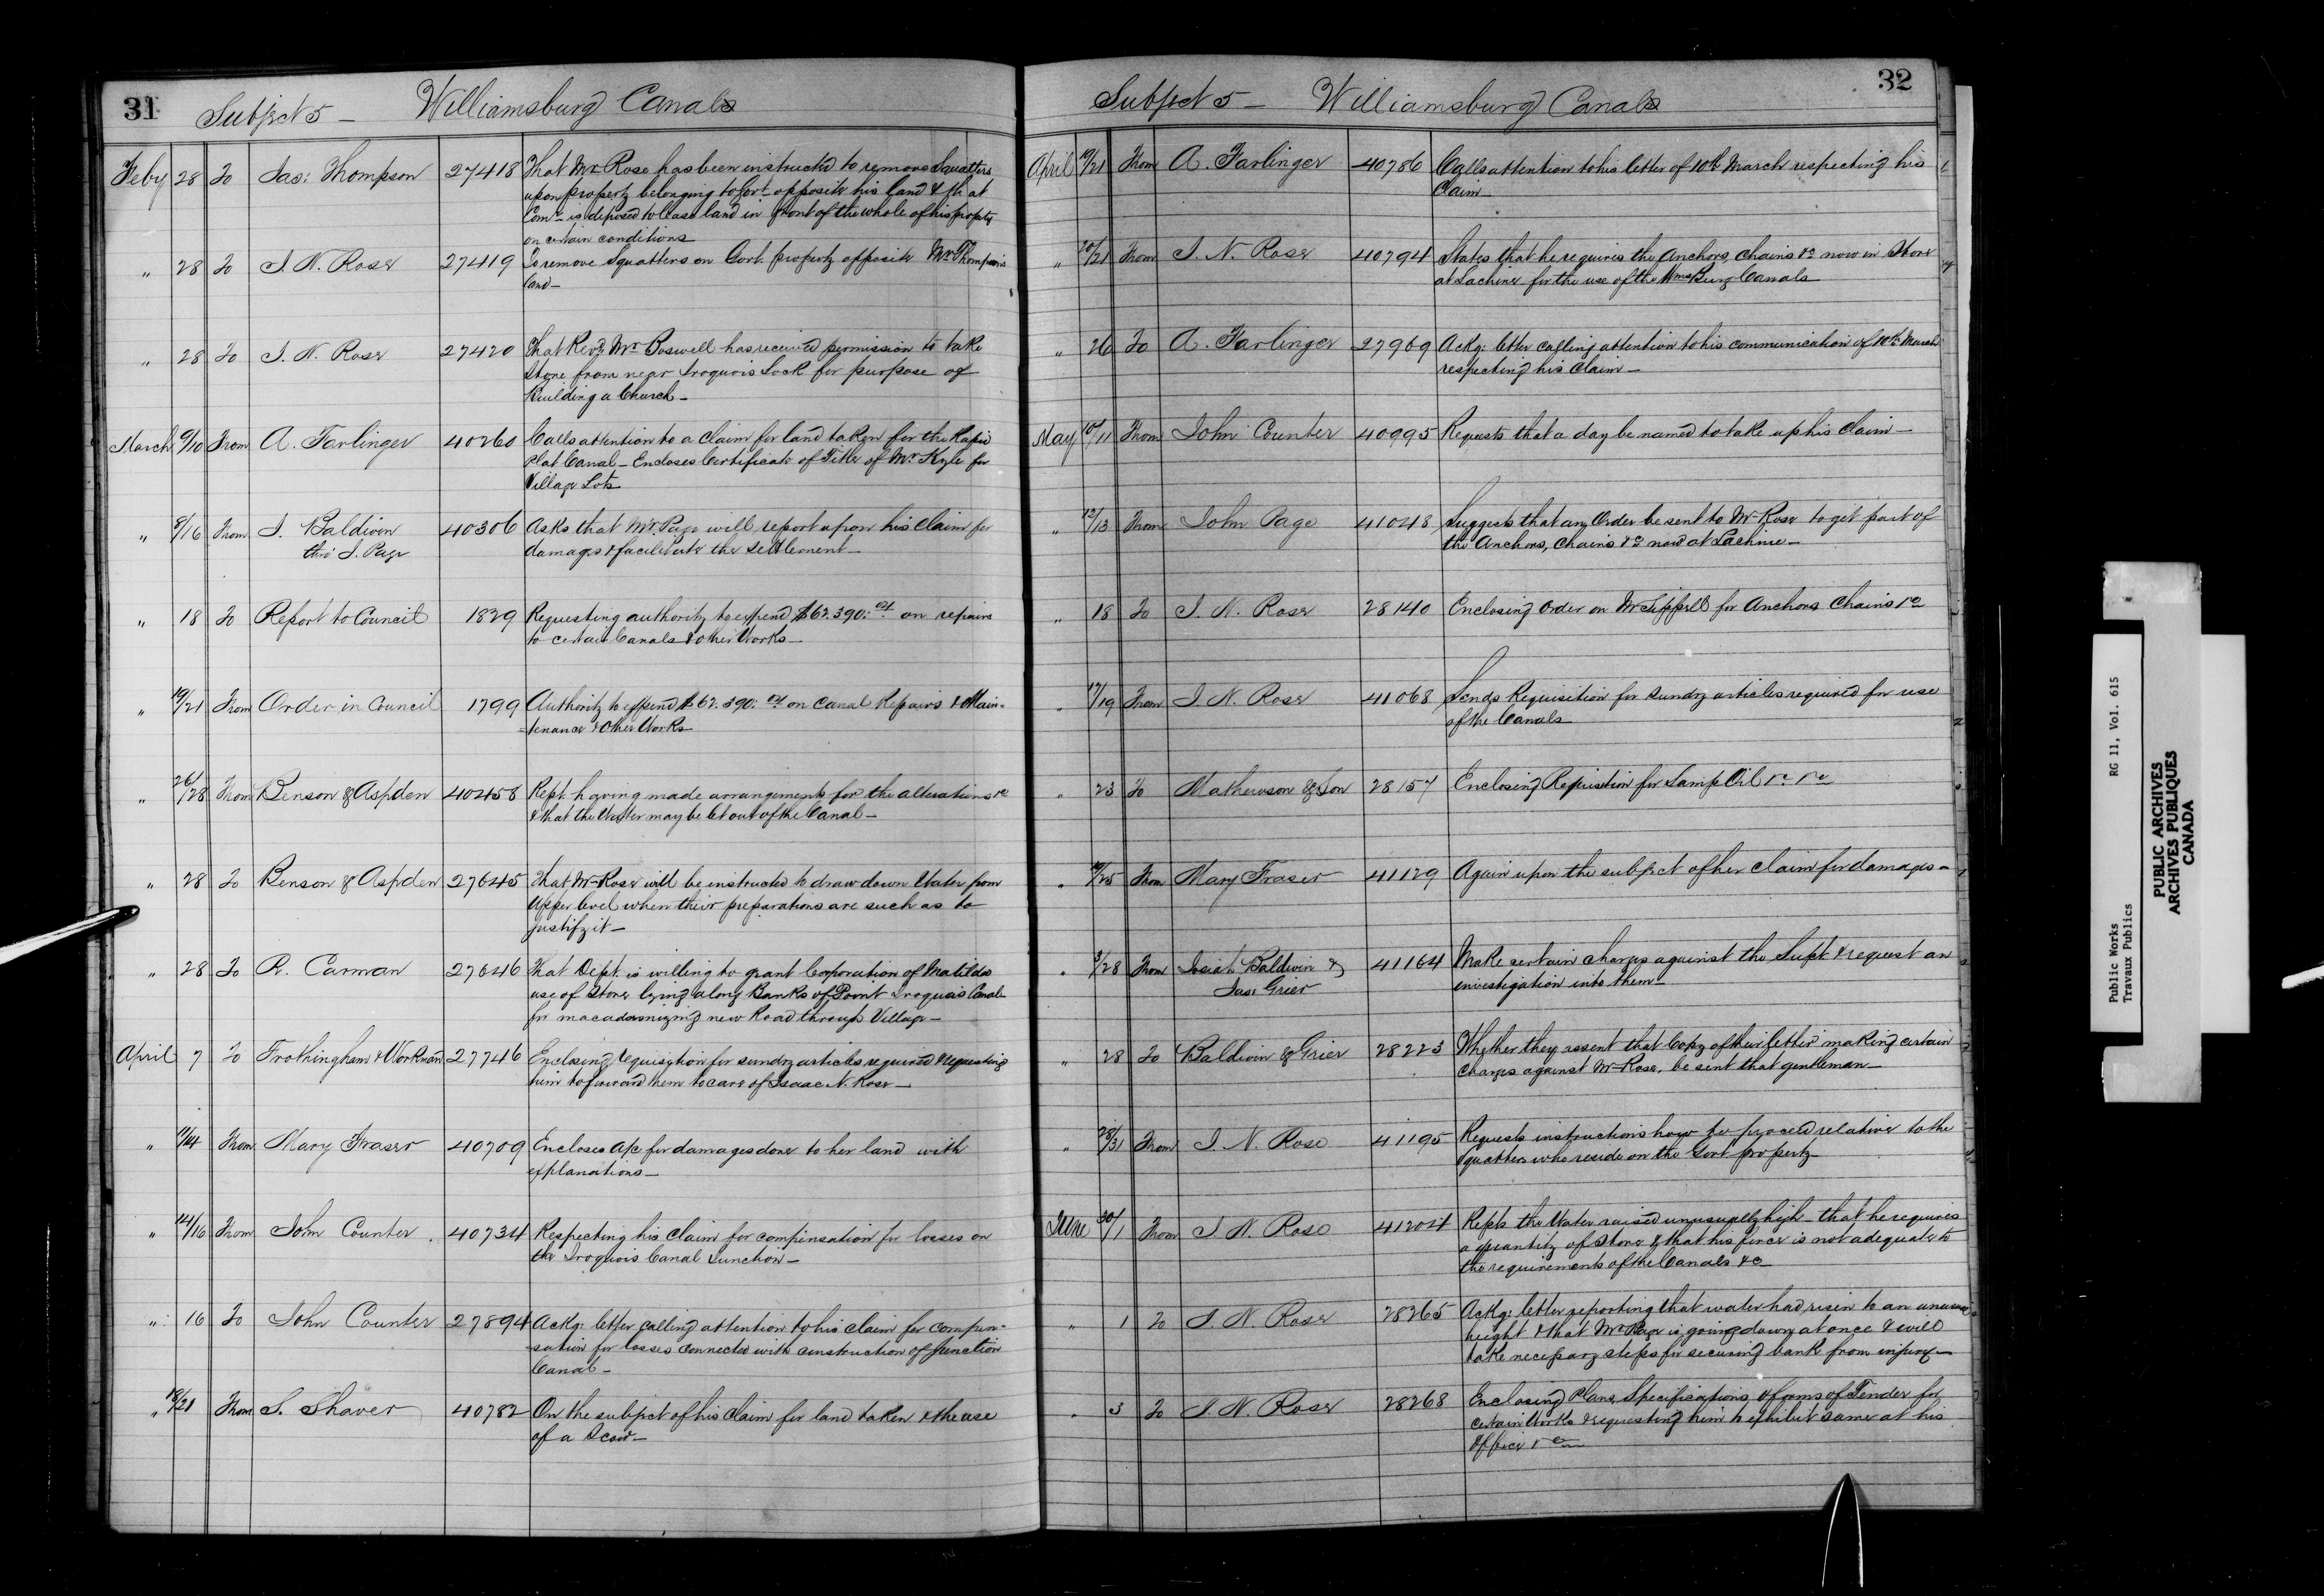 31 Subject 5 - Williamsburg Canals
Feby 28 To Jas: Thompson 27418 That Mr Rose has been instructed to remove Squatters
upon property belonging to Govt opposite his land & that
Comr is disposed to lease land in front of the whole of his property
on certain conditions
" 28 To I. N. Rose 27419 To remove Squatters on Govt property opposite Mr Thompson's
land -
" 28 To I. N. Rose 27420 That Revd Mr Boswell has received permission to take
Stone from near Iroquois Lock for purpose of
Building a Church -
March 9/10 From A. Farlinger 40260 Calls attention to a claim for land taken for the Rapid
Plat Canal - Encloses Certificate of Title of Mr Kyle for
Village Lots
" 8/16 From I. Baldwin 40306 Asks that Mr Page will report upon his claim for
thro' J. Page damages & facilitate the settlement -
" 18 To Report to Council 1829 Requesting authority to expend $62.390: 04 on repairs
to certain Canals & other Works -
" 19/21 From Order in Council 1799 Authority to expend $62.390: 04 on Canal Repairs & Main-
-tenance & Other Works
" 26/28 From Benson & Aspden 40458 Rept. having made arrangements for the alterations &c
& that the Water may be let out of the Canal -
" 28 To Benson & Aspden 27645 That Mr Rose will be instructed to draw down Water from
Upper level when their preparations are such as to
justify it -
" 28 To R. Carman 27646 That Dept. is willing to grant Corporation of Matilda
use of Stone lying along Banks of Point Iroquois Canal
for macadamizing new Road through Village -
April 7 To Frothingham & Workman 27746 Enclosing requisition for sundry articles required & requesting
him to forward them to care of Isaac N. Rose -
" 11/14 From Mary Fraser 40709 Encloses a/c for damages done to her land with
explanations -
" 14/16 From John Counter 40734 Respecting his claim for compensation for losses on
the Iroquois Canal Junction -
" 16 To John Counter 27894 Ackg: letter calling attention to his claim for compen-
sation for losses connected with construction of Junction
Canal -
" 18/21 From S. Shaver 40782 On the subject of his claim for land taken & the use
of a Scow -
Subject 5 - Williamsburg Canals 32
April 19/21 From A. Farlinger 40786 Calls attention to his letter of 10th March respecting his
Claim -
" 20/21 From I. N. Rose 40794 States that he requires the Anchors, Chains &c now in Store
at Lachine for the use of the WmsBurg Canals
" 26 To A. Farlinger 27969 Ackg: letter calling attention to his communication of 10th March
respecting his Claim -
May 10/11 From John Counter 40995 Requests that a day be named to take up his Claim -
" 12/13 From John Page 41048 Suggests that any Order be sent to Mr Rose to get part of
the Anchors, Chains &c now at Lachine -
" 18 To I. N. Rose 28140 Enclosing order on Mr Sippell for Anchors Chains &c
" 17/19 From I. N. Rose 41068 Sends Requisition for sundry articles required for use
of the Canals
" 23 To Mathewson & Son 28157 Enclosing Requisition for Lamp Oil &c &c
" /25 From Mary Fraser 41129 Again upon the subject of her claim for damages -
" /28 From Josiah Baldwin & 41164 Make certain charges against the Supt & request an
Jas: Grier investigation into them -
" 28 To Baldwin & Grier 28223 Whether they assent that Copy of their letter making certain
charges against Mr Rose, be sent that gentleman -
" 28/31 From I. N. Rose 41195 Requests instructions how to proceed relative to the
Squatters who reside on the Govt property -
June 30/1 From I. N. Rose 41204 Repts the Water raised unusually high - that he requires
a quantity of Stone & that his fence is not adequate to
the requirements of the Canals &c
" 1 To I. N. Rose 28265 Ackg: letter reporting that water had risen to an unusual
height & that Mr Page is going down at once & will
take necessary steps for securing bank from injury -
" 3 To I. N. Rose 28268 Enclosing Plans, Specifications, & forms of Tender for
certain Works & requesting him to exhibit same at his
Office &c
Public Works RG 11, Vol. 615
Travaux Publics
PUBLIC ARCHIVES
ARCHIVES PUBLIQUES
CANADA